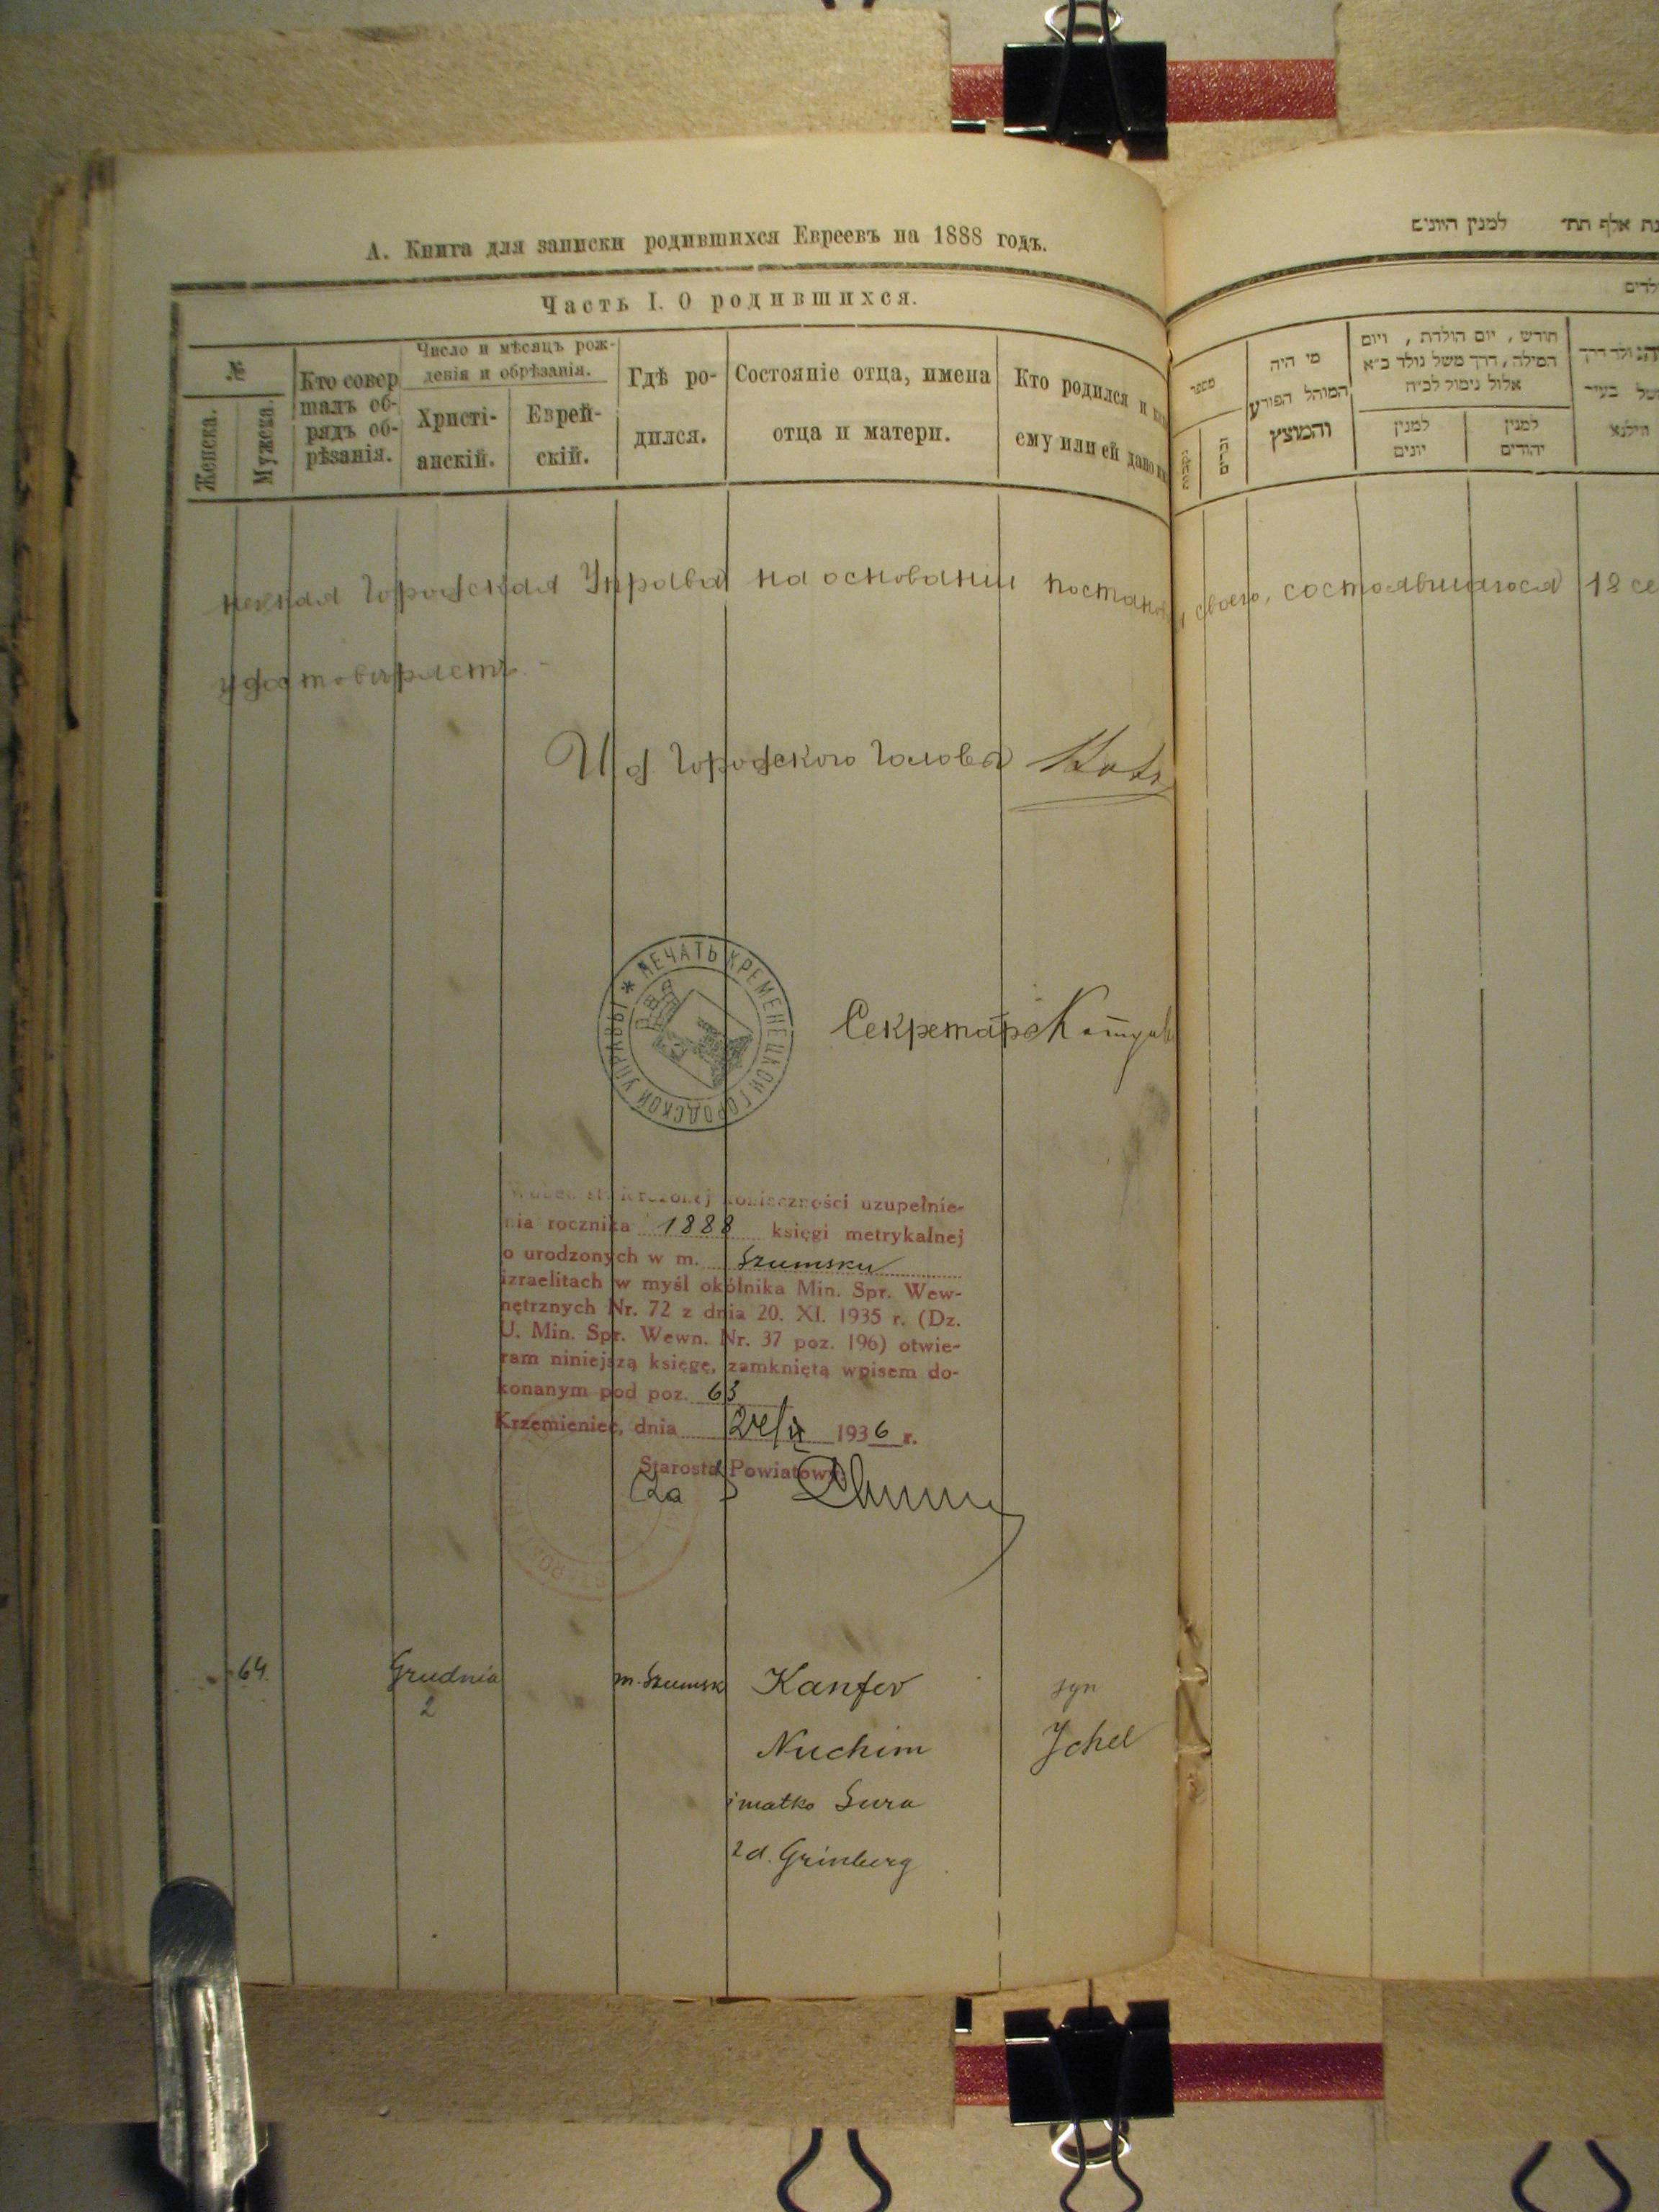 А. Книга для записки родившихся Евреевъ на 1888 годъ.
למנין היונים
Часть I. О родившихся.
№
Женска.
Мужска.
Кто совер
шалъ об-
рядъ об-
рѣзанія.
Число и мѣсяцъ рож-
денія и обрѣзанія.
Христі-
анскій.
Еврей-
скій.
Гдѣ ро-
дился.
Состояніе отца, имена
отца и матери.
Кто родился и
ему или ей дано
מספר
מי היה
המוהל הפורע
והמוצץ
חודש, יום הולדת, ויום
המילה, דרך משל נולד כ״א
אלול נימול לכ״ח
למנין
יונים
למנין
יהודים
משל בעיר
ווילנא
Городская Управа на основании
своего, состоявшагося 18
удостовѣряетъ.
И д Городского Головы
ПЕЧАТЬ КРЕМЕНЕЦКОЙ ГОРОДСКОЙ УПРАВЫ
Секретарь
Wobec stwierdzonej konieczności uzupełnie-
nia rocznika 1888 księgi metrykalnej
o urodzonych w m. Szumsku
izraelitach w myśl okólnika Min. Spr. Wew-
nętrznych Nr. 72 z dnia 20. XI. 1935 r. (Dz.
U. Min. Spr. Wewn. Nr. 37 poz. 196) otwie-
ram niniejszą księgę, zamkniętą wpisem do-
konanym pod poz. 63
Krzemieniec, dnia 1936 r.
Starosta Powiatowy
64.
Grudnia
2
m. Szumsk
Kanfer
Nuchim
i matka Sura
z d. Grinberg
syn
Ichel